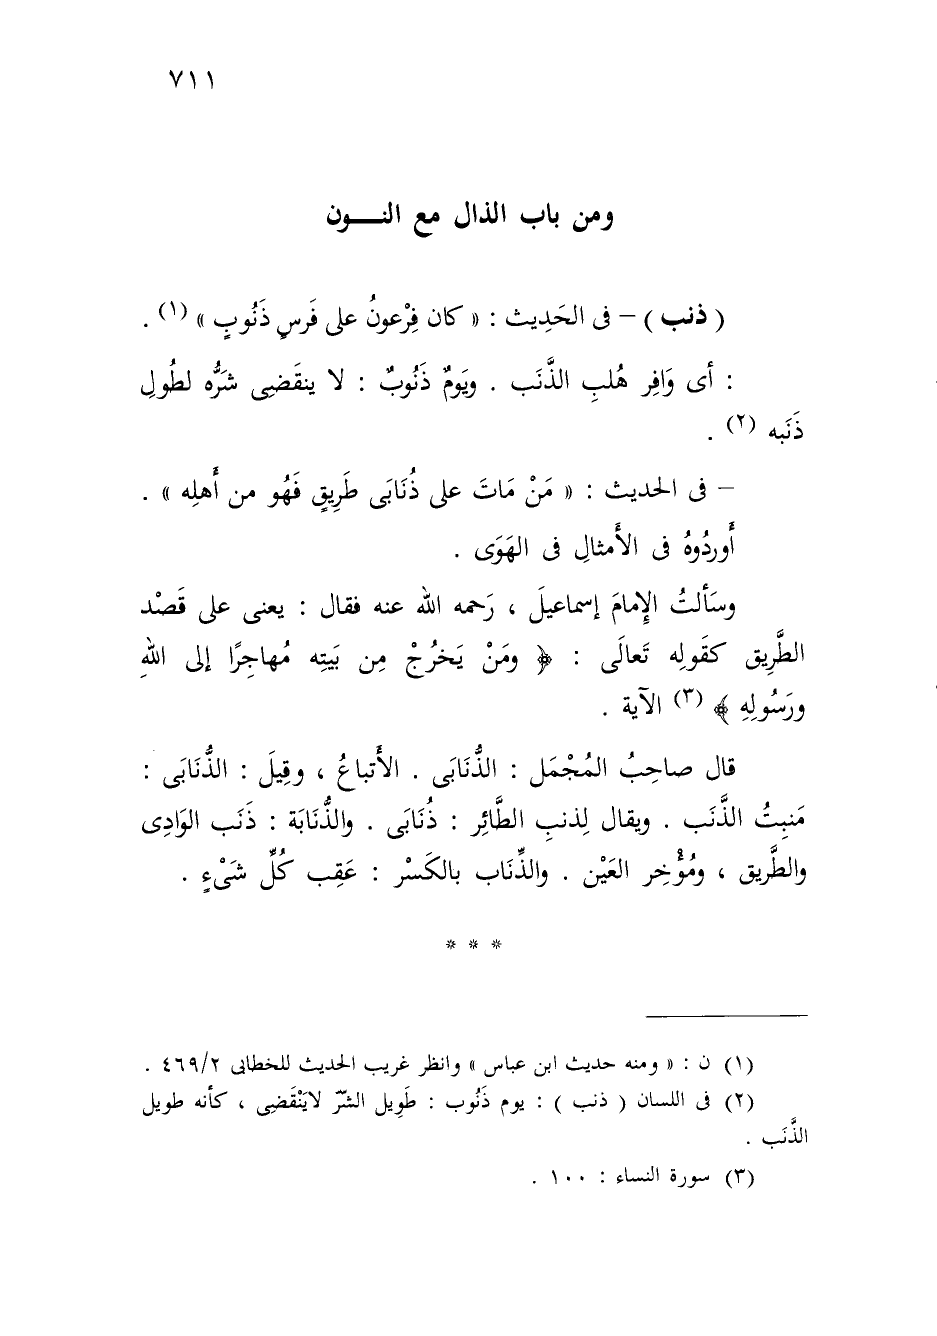 ٧١١
ومن باب الذال مع النـــون
( ذنب ) – فى الحَدِيث : « كان فِرْعونُ على فَرسٍ ذَنُوبٍ » (١) .
: أى وَافِر هُلبِ الذَّنَب . ويَومٌ ذَنُوبٌ : لا ينقَضِى شَرُّه لطُولِ
ذَنَبه (٢) .
– فى الحديث : « مَنْ مَاتَ على ذُنَابَى طَرِيقٍ فَهُو من أَهلِه » .
أَوردُوهُ فى الأَمثالِ فى الهَوَى .
وسَألتُ الإِمامَ إسماعيلَ ، رَحمه الله عنه فقال : يعنى على قَصْد
الطَّرِيق كقَولِه تَعالَى : ﴿ ومَنْ يَخرُجْ مِن بَيتِه مُهاجِرًا إلى اللهِ
ورَسُولِهِ ﴾ (٣) الآية .
قال صاحِبُ المُجْمَل : الذُّنَابَى . الأَتباعُ ، وقِيلَ : الذُّنَابَى :
مَنبِتُ الذَّنَب . ويقال لِذنبِ الطَّائِر : ذُنَابَى . والذُّنَابَة : ذَنَب الوَادِى
والطَّريق ، ومُؤْخِر العَيْن . والذِّنَاب بالكَسْر : عَقِب كُلِّ شَىْءٍ .
* * *
(١) ن : « ومنه حديث ابن عباس » وانظر غريب الحديث للخطابى ٤٦٩/٢ .
(٢) فى اللسان ( ذنب ) : يوم ذَنُوب : طَوِيل الشَرّ لايَنْقَضِى ، كأنه طويل
الذَّنَب .
(٣) سورة النساء : ١٠٠ .